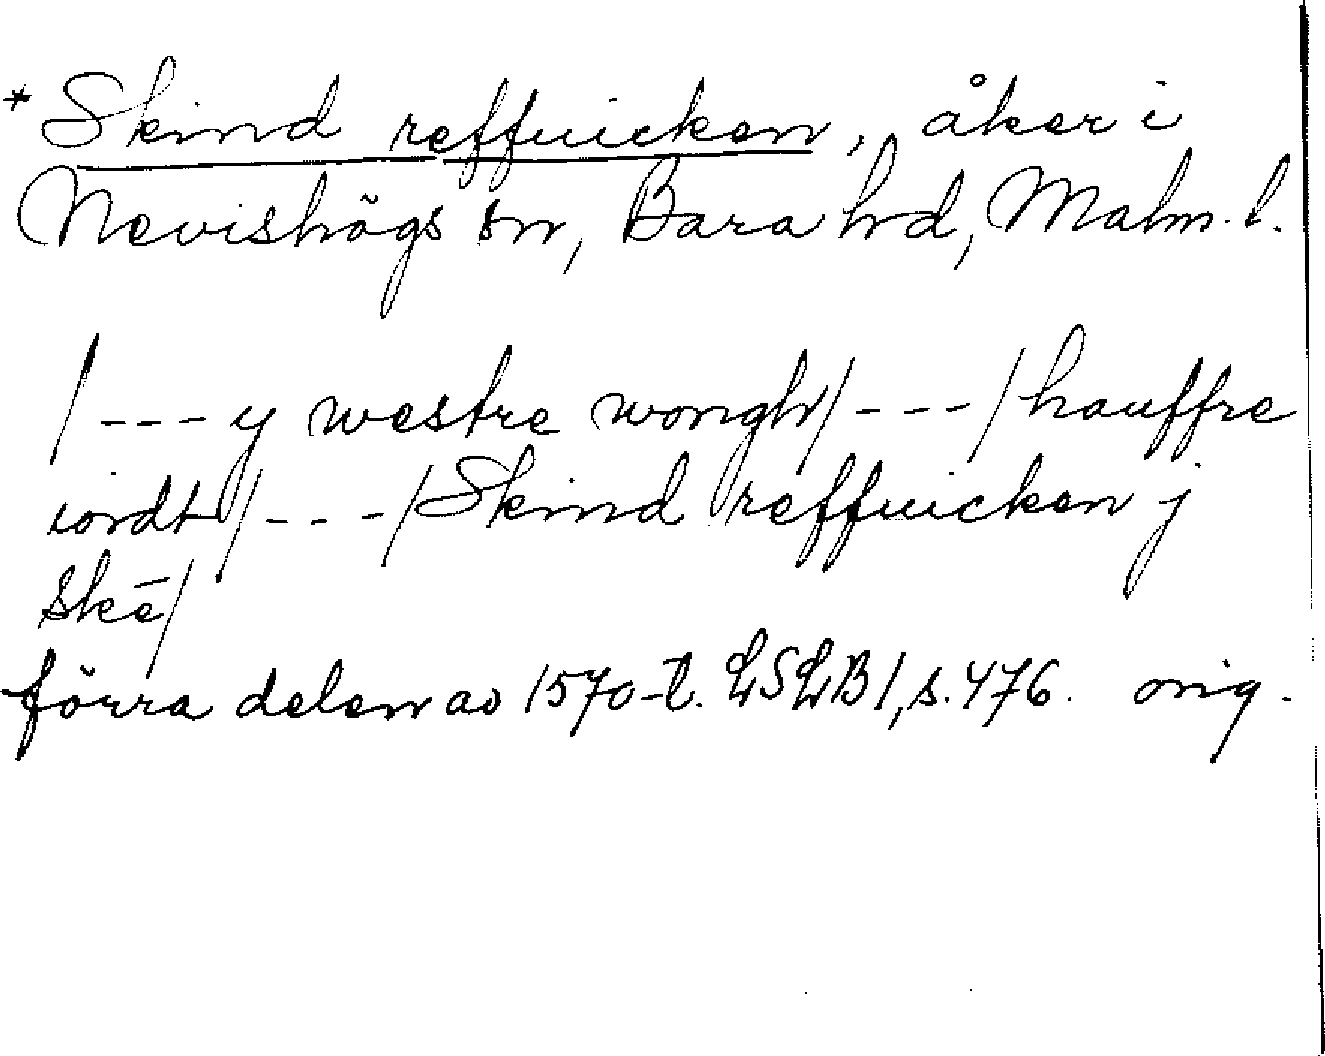 *Skind reffuicken, åker i
Nevishögs sn, Bara hd, Malm. l.
/---y westre wongh/---/hauffre
iordt/---/Skind reffuicken j
skē/
förra delen av 1570-t. LSLB I, s. 476. orig.